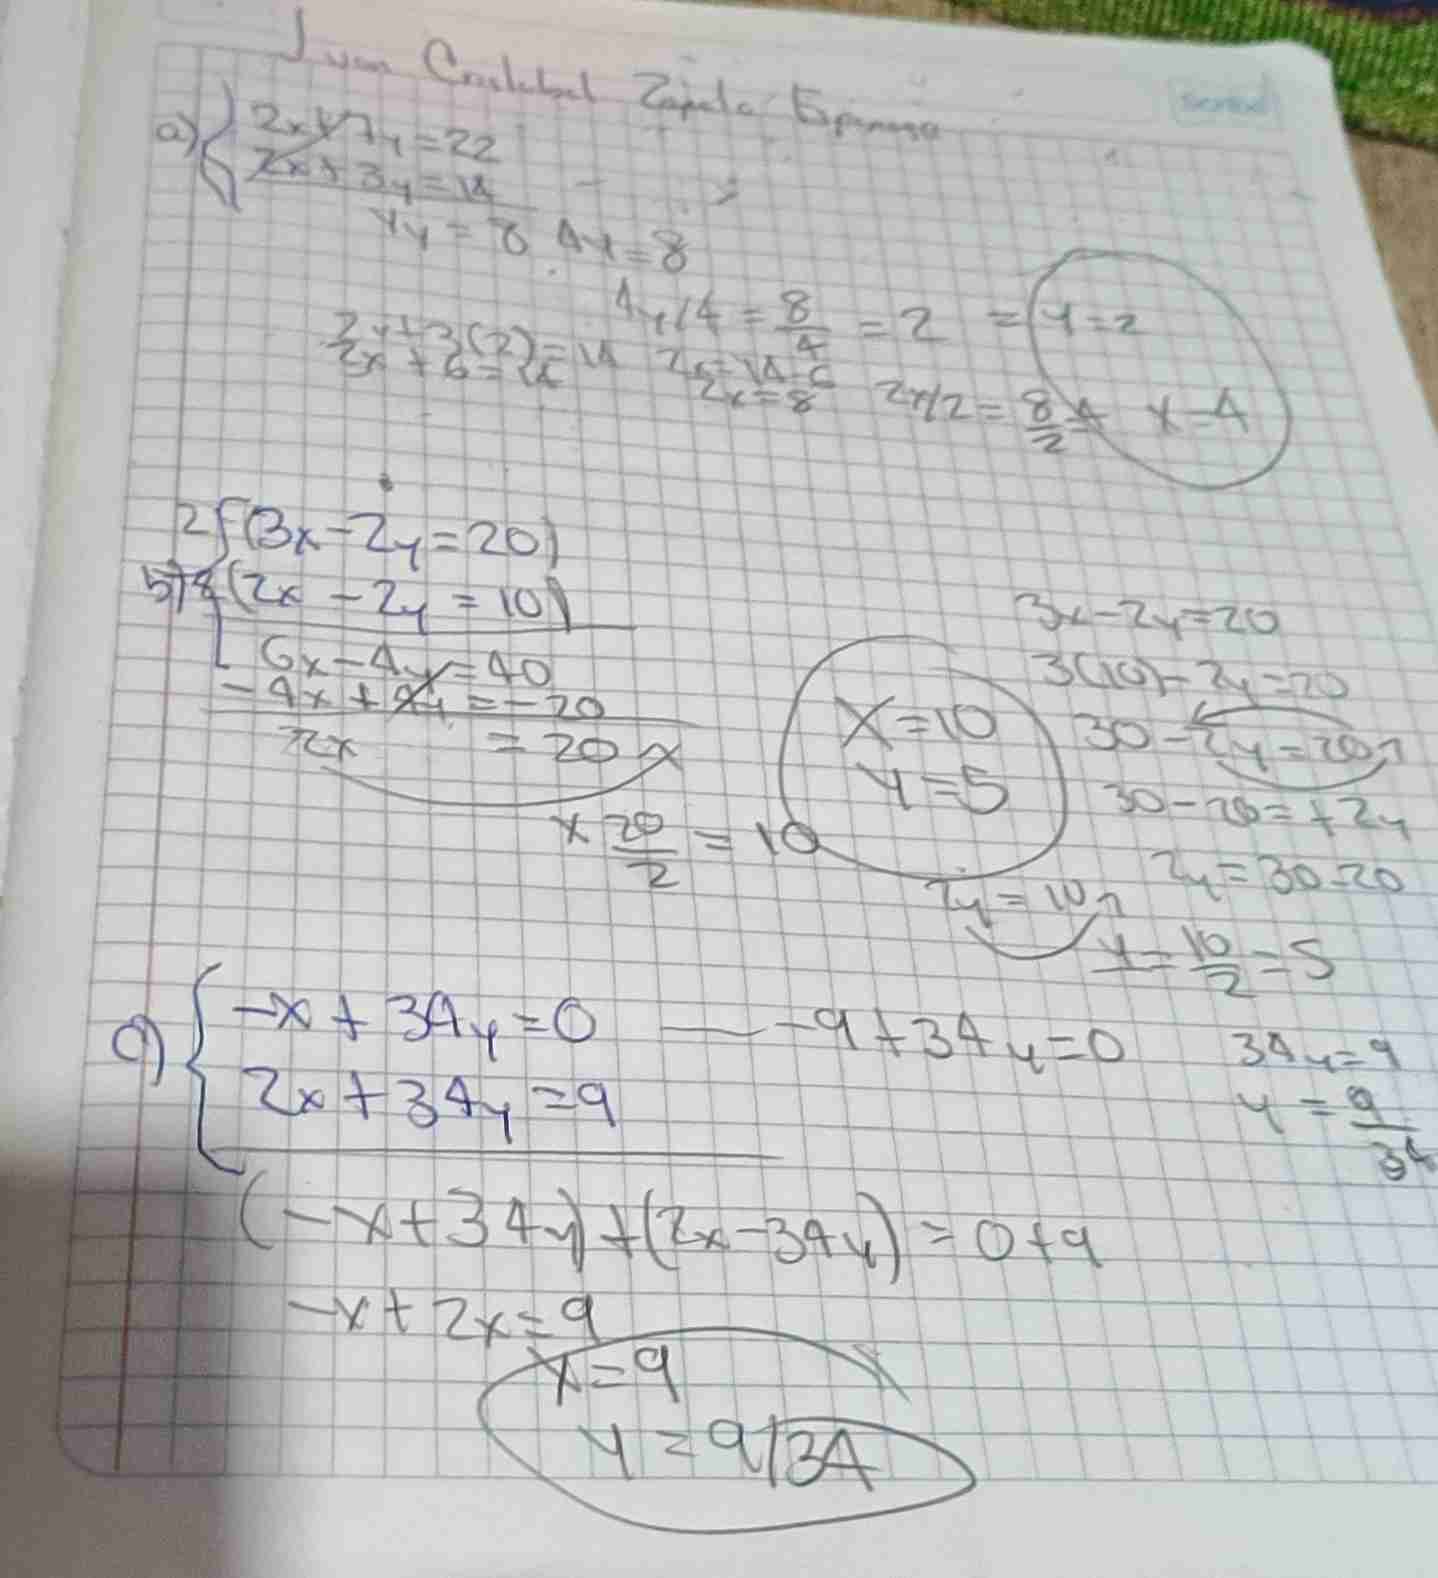 Juan Zapata Espinosa
a) { 2x+7y=22
2x+3y=14
4y = 8 4y=8
4y/4 = 8/4 = 2 = y=2
2x+3(2)=14 2x=14-6
2x+6=14 2x=8 2x/2=8/2=4 x=4
2 (3x-2y=20)
b) (2x-2y=10)
6x-4y=40
-4x+4y=-20
2x = 20
x 20/2 = 10
x=10
y=5
3x-2y=20
3(10)-2y=20
30-2y=20
30-20=+2y
2y=30-20
2y=10
y=10/2=5
c) { -x+34y=0 — -9+34y=0 34y=9
2x+34y=9 y=9/34
(-x+34y)+(2x-34y)=0+9
-x+2x=9
x=9
y=9/34